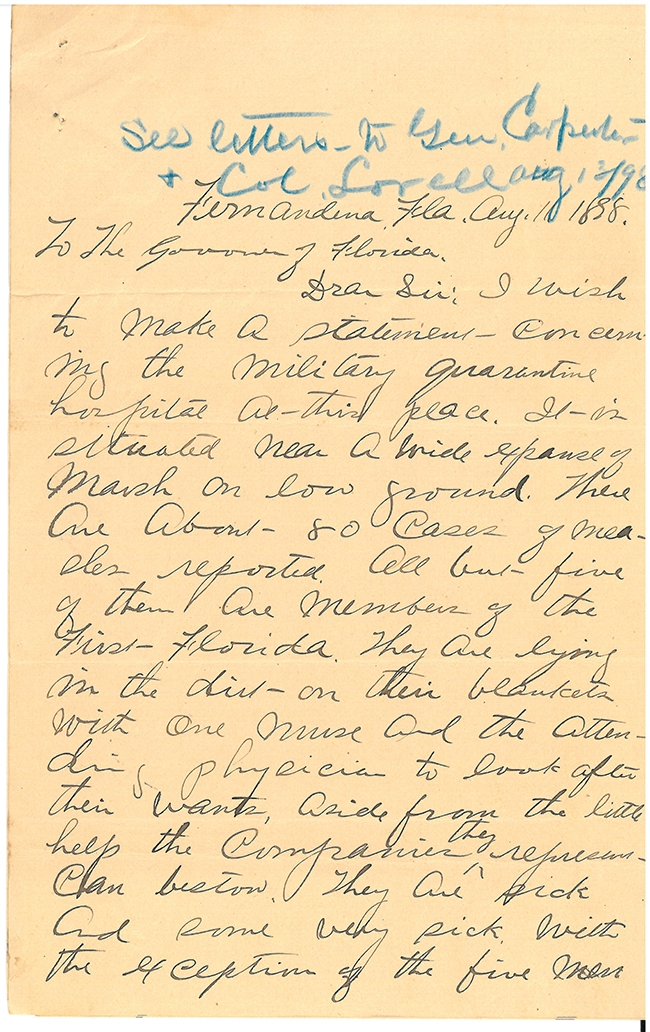 See letters - to Gen. Carpenter
+ Col. Lovell Aug 12/98
Fernandina, Fla. Aug. 1898.
To The Govoner of Florida.
Dear Sir: I wish
to make a statement concern-
ing the military quarantine
hospital at this place. It is
situated near a wide expanse of
Marsh on low ground. There
are about 80 cases of mea-
sles reported. All but five
of them are members of the
First Florida. They are lying
in the dirt on their blankets
with one nurse and the atten-
ding physician to look after
their wants, aside from the little
help the Companies they represen-
can bestow. They are sick
and some very sick. With
the exception of the five men